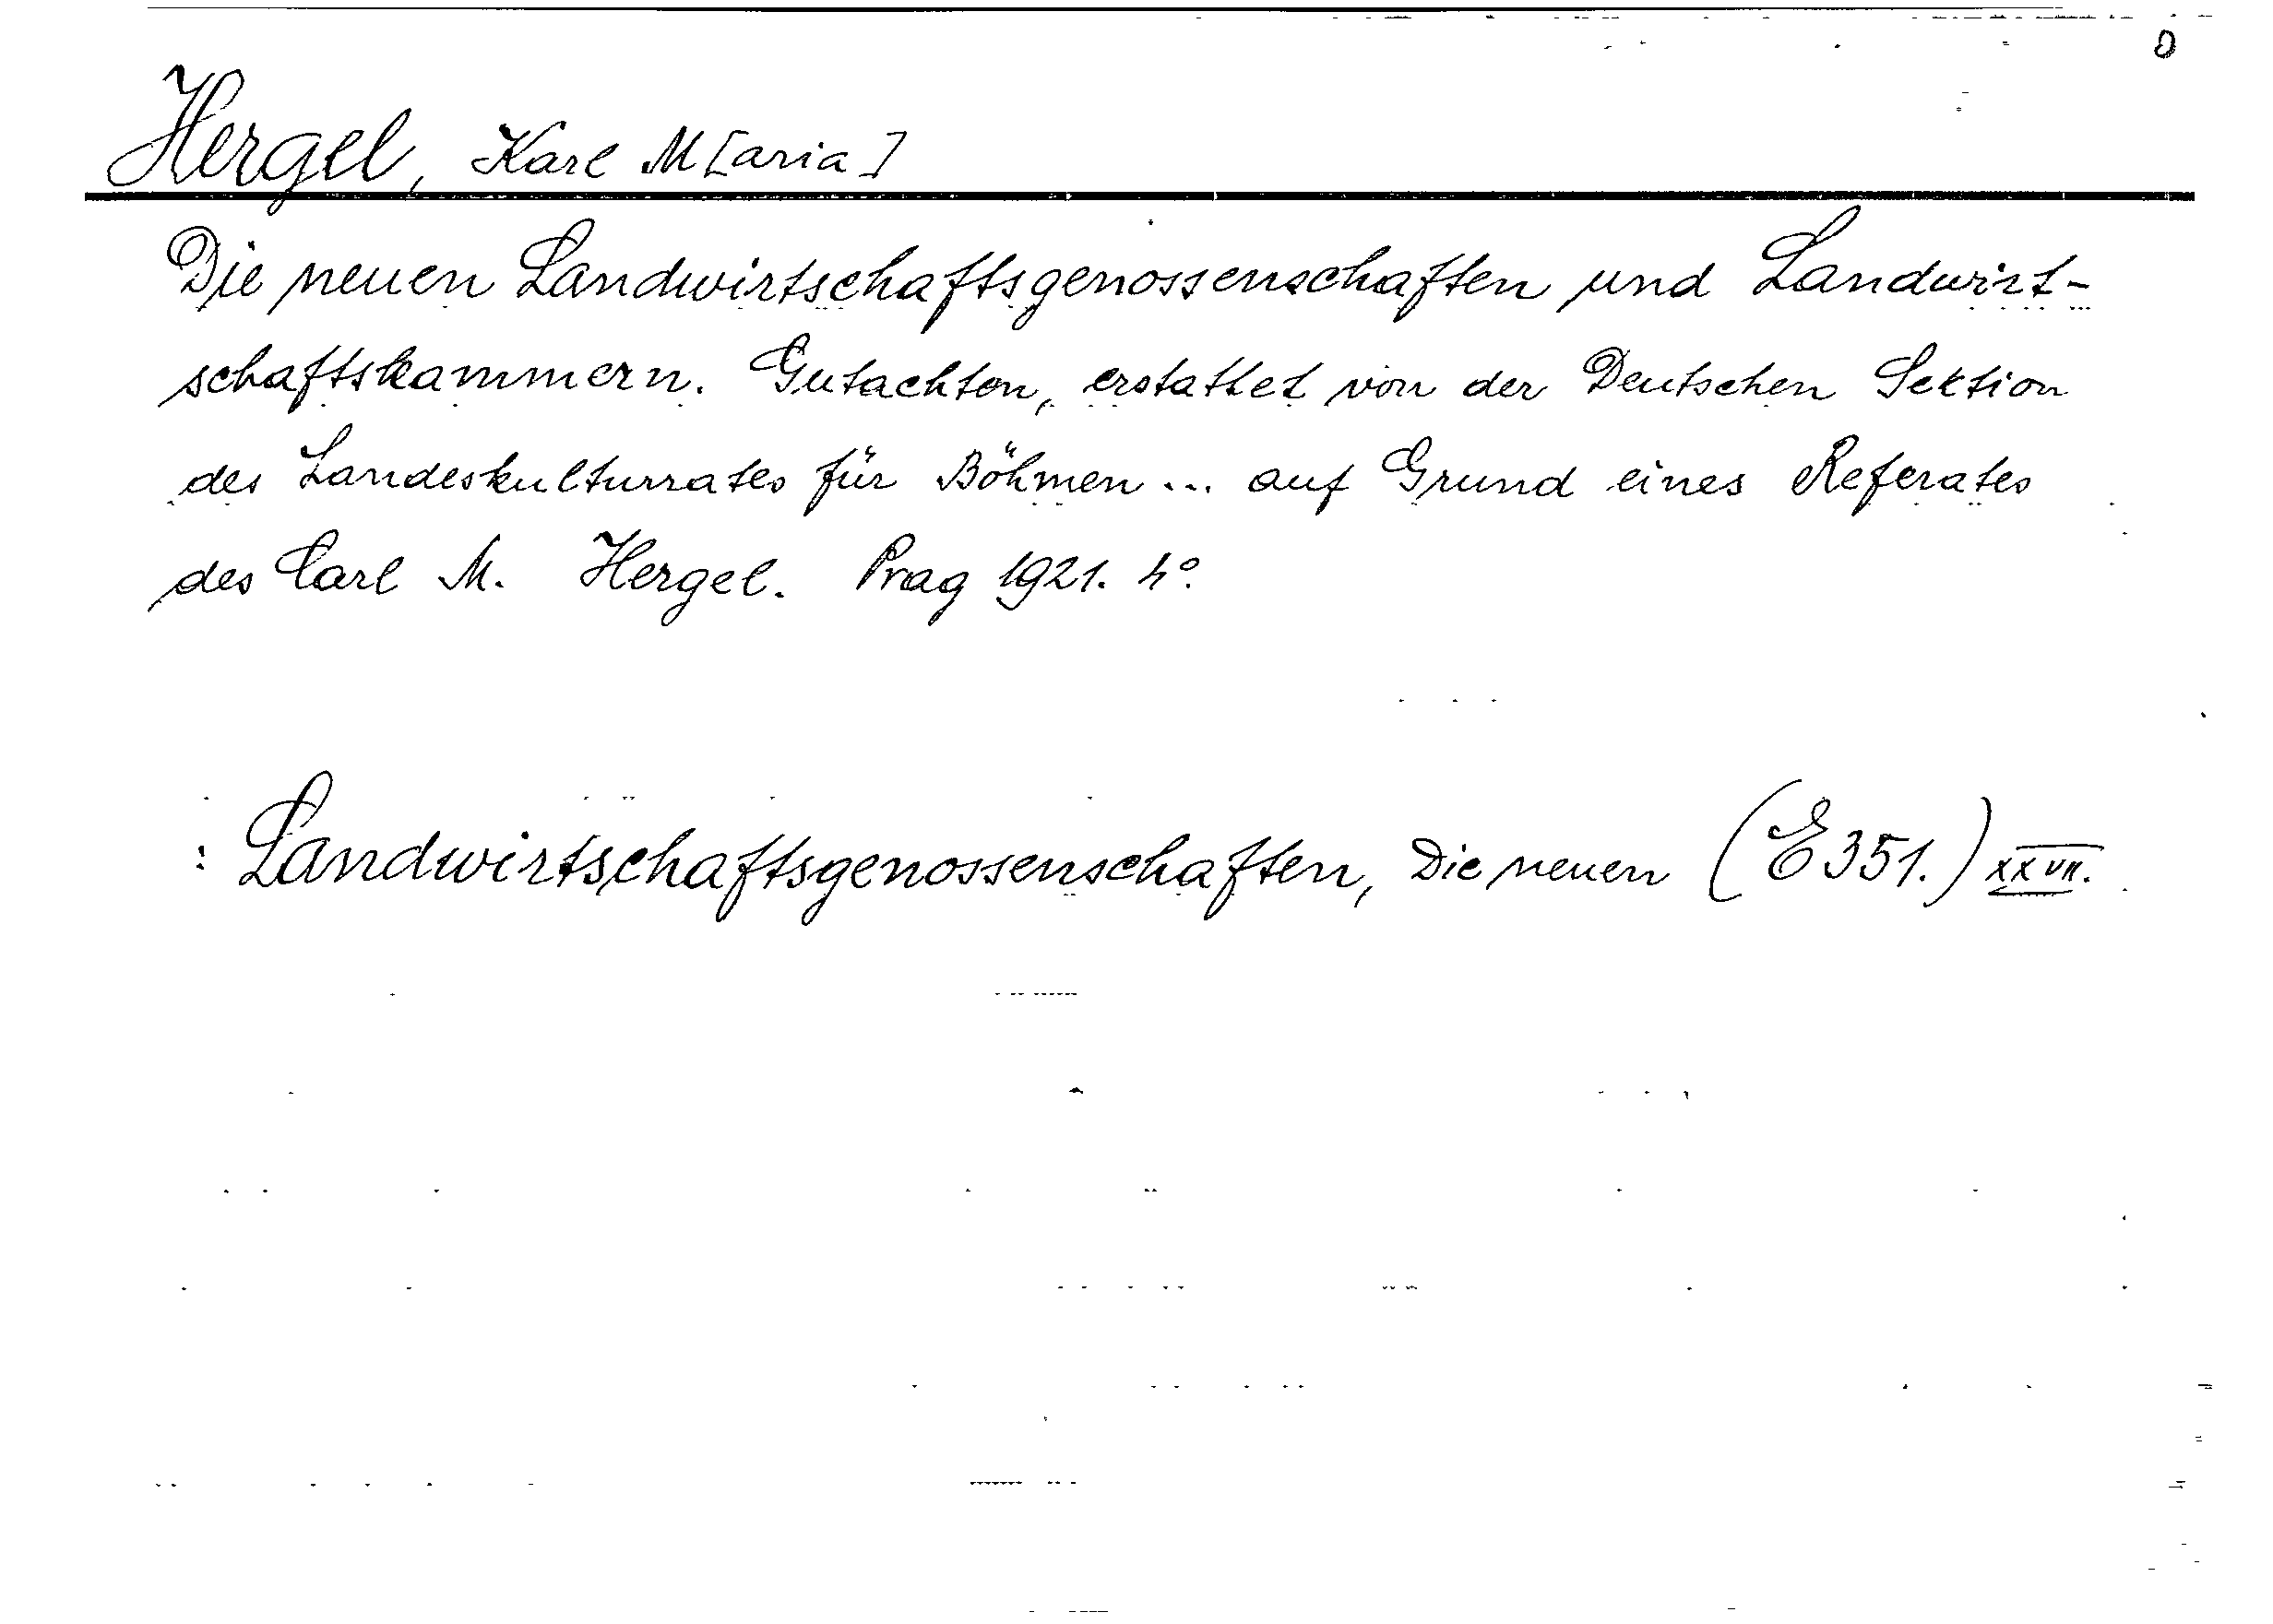 Hergel, Karl M[aria]
Die neuen Landwirtschaftsgenossenschaften und Landwirt-
schaftskammern. Gutachten, erstattet von der Deutschen Sektion
des Landeskulturrates für Böhmen ... auf Grund eines Referates
des Carl M. Hergel. Prag 1921. 4°.
: Landwirtschaftsgenossenschaften, Die neuen (E 351.) XXVII.